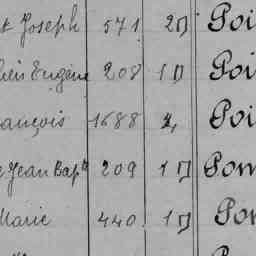 t Joseph 571 2 D Poi
Eugène 208 1 D Poi
ançois 1688 2, Poi
Jean Bapte 209 1 D Pom
Marie 440 1 D Pom